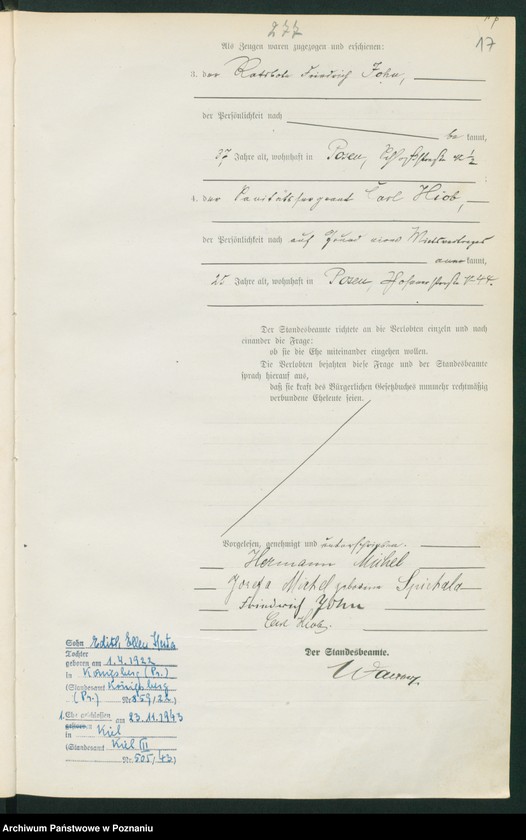 277
17
Als Zeugen waren zugezogen und erschienen:
3. der Ratsbote Friedrich John,
der Persönlichkeit nach
be kannt,
37 Jahre alt, wohnhaft in Posen,
4. der Sanitätssergeant Carl Hiob,
der Persönlichkeit nach auf Grund eines
aner kannt,
25 Jahre alt, wohnhaft in Posen, № 44.
Der Standesbeamte richtete an die Verlobten einzeln und nach
einander die Frage:
ob sie die Ehe miteinander eingehen wollen.
Die Verlobten bejahten diese Frage und der Standesbeamte
sprach hierauf aus,
daß sie kraft des Bürgerlichen Gesetzbuches nunmehr rechtmäßig
verbundene Eheleute seien.
Vorgelesen, genehmigt und unterschrieben.
Hermann Michel
Josefa Michel geborene Spichala
Friedrich John
Carl Hiob.
Der Standesbeamte.
Sohn Edith Ellen Herta
Tochter
geboren am 1.4.1922
in Königsberg (Pr.)
(Standesamt Königsberg
(Pr.) Nr. 859/22)
1. Ehe geschlossen am 23.11.1943
in Kiel
(Standesamt Kiel III
Nr. 505/43)
Archiwum Państwowe w Poznaniu